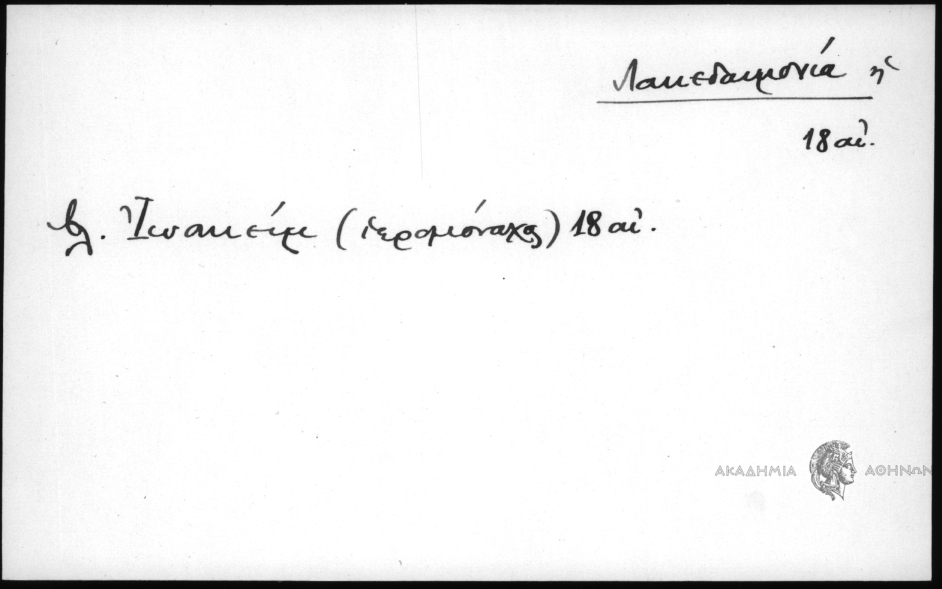 Λακεδαιμονία ἡ
18 αἰ.
βλ. Ἰωακείμ (ἱερομόναχος) 18 αἰ.
ΑΚΑΔΗΜΙΑ ΑΘΗΝΩΝ